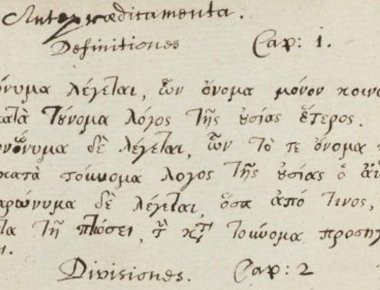 Antepraedicamenta.
Definitiones Cap: 1.
ώνυμα λέγεται, ὧν ὄνομα μόνον κοινὸ
κατὰ τὔνομα λόγος τῆς ȣσίας ἕτερος.
νώνυμα δὲ λέγεται, ὧν τό τε ὄνομα κ
κατὰ τοὔνομα λογος τῆς ȣσίας ὁ αὐ
αρώνυμα δὲ λέγεται, ὅσα από τινος,
τῇ πτώσει, τοὔνομα προση
Divisiones. Cap: 2